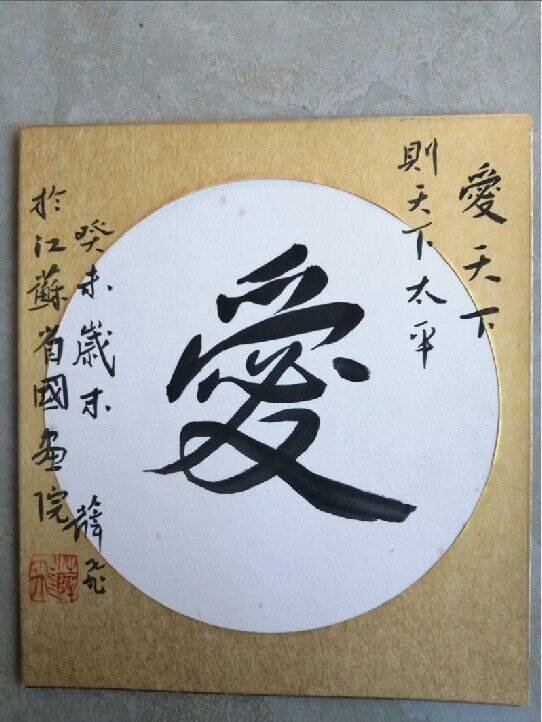 愛天下
則天下太平
愛
癸未歲末 薛
於江蘇省國畫院